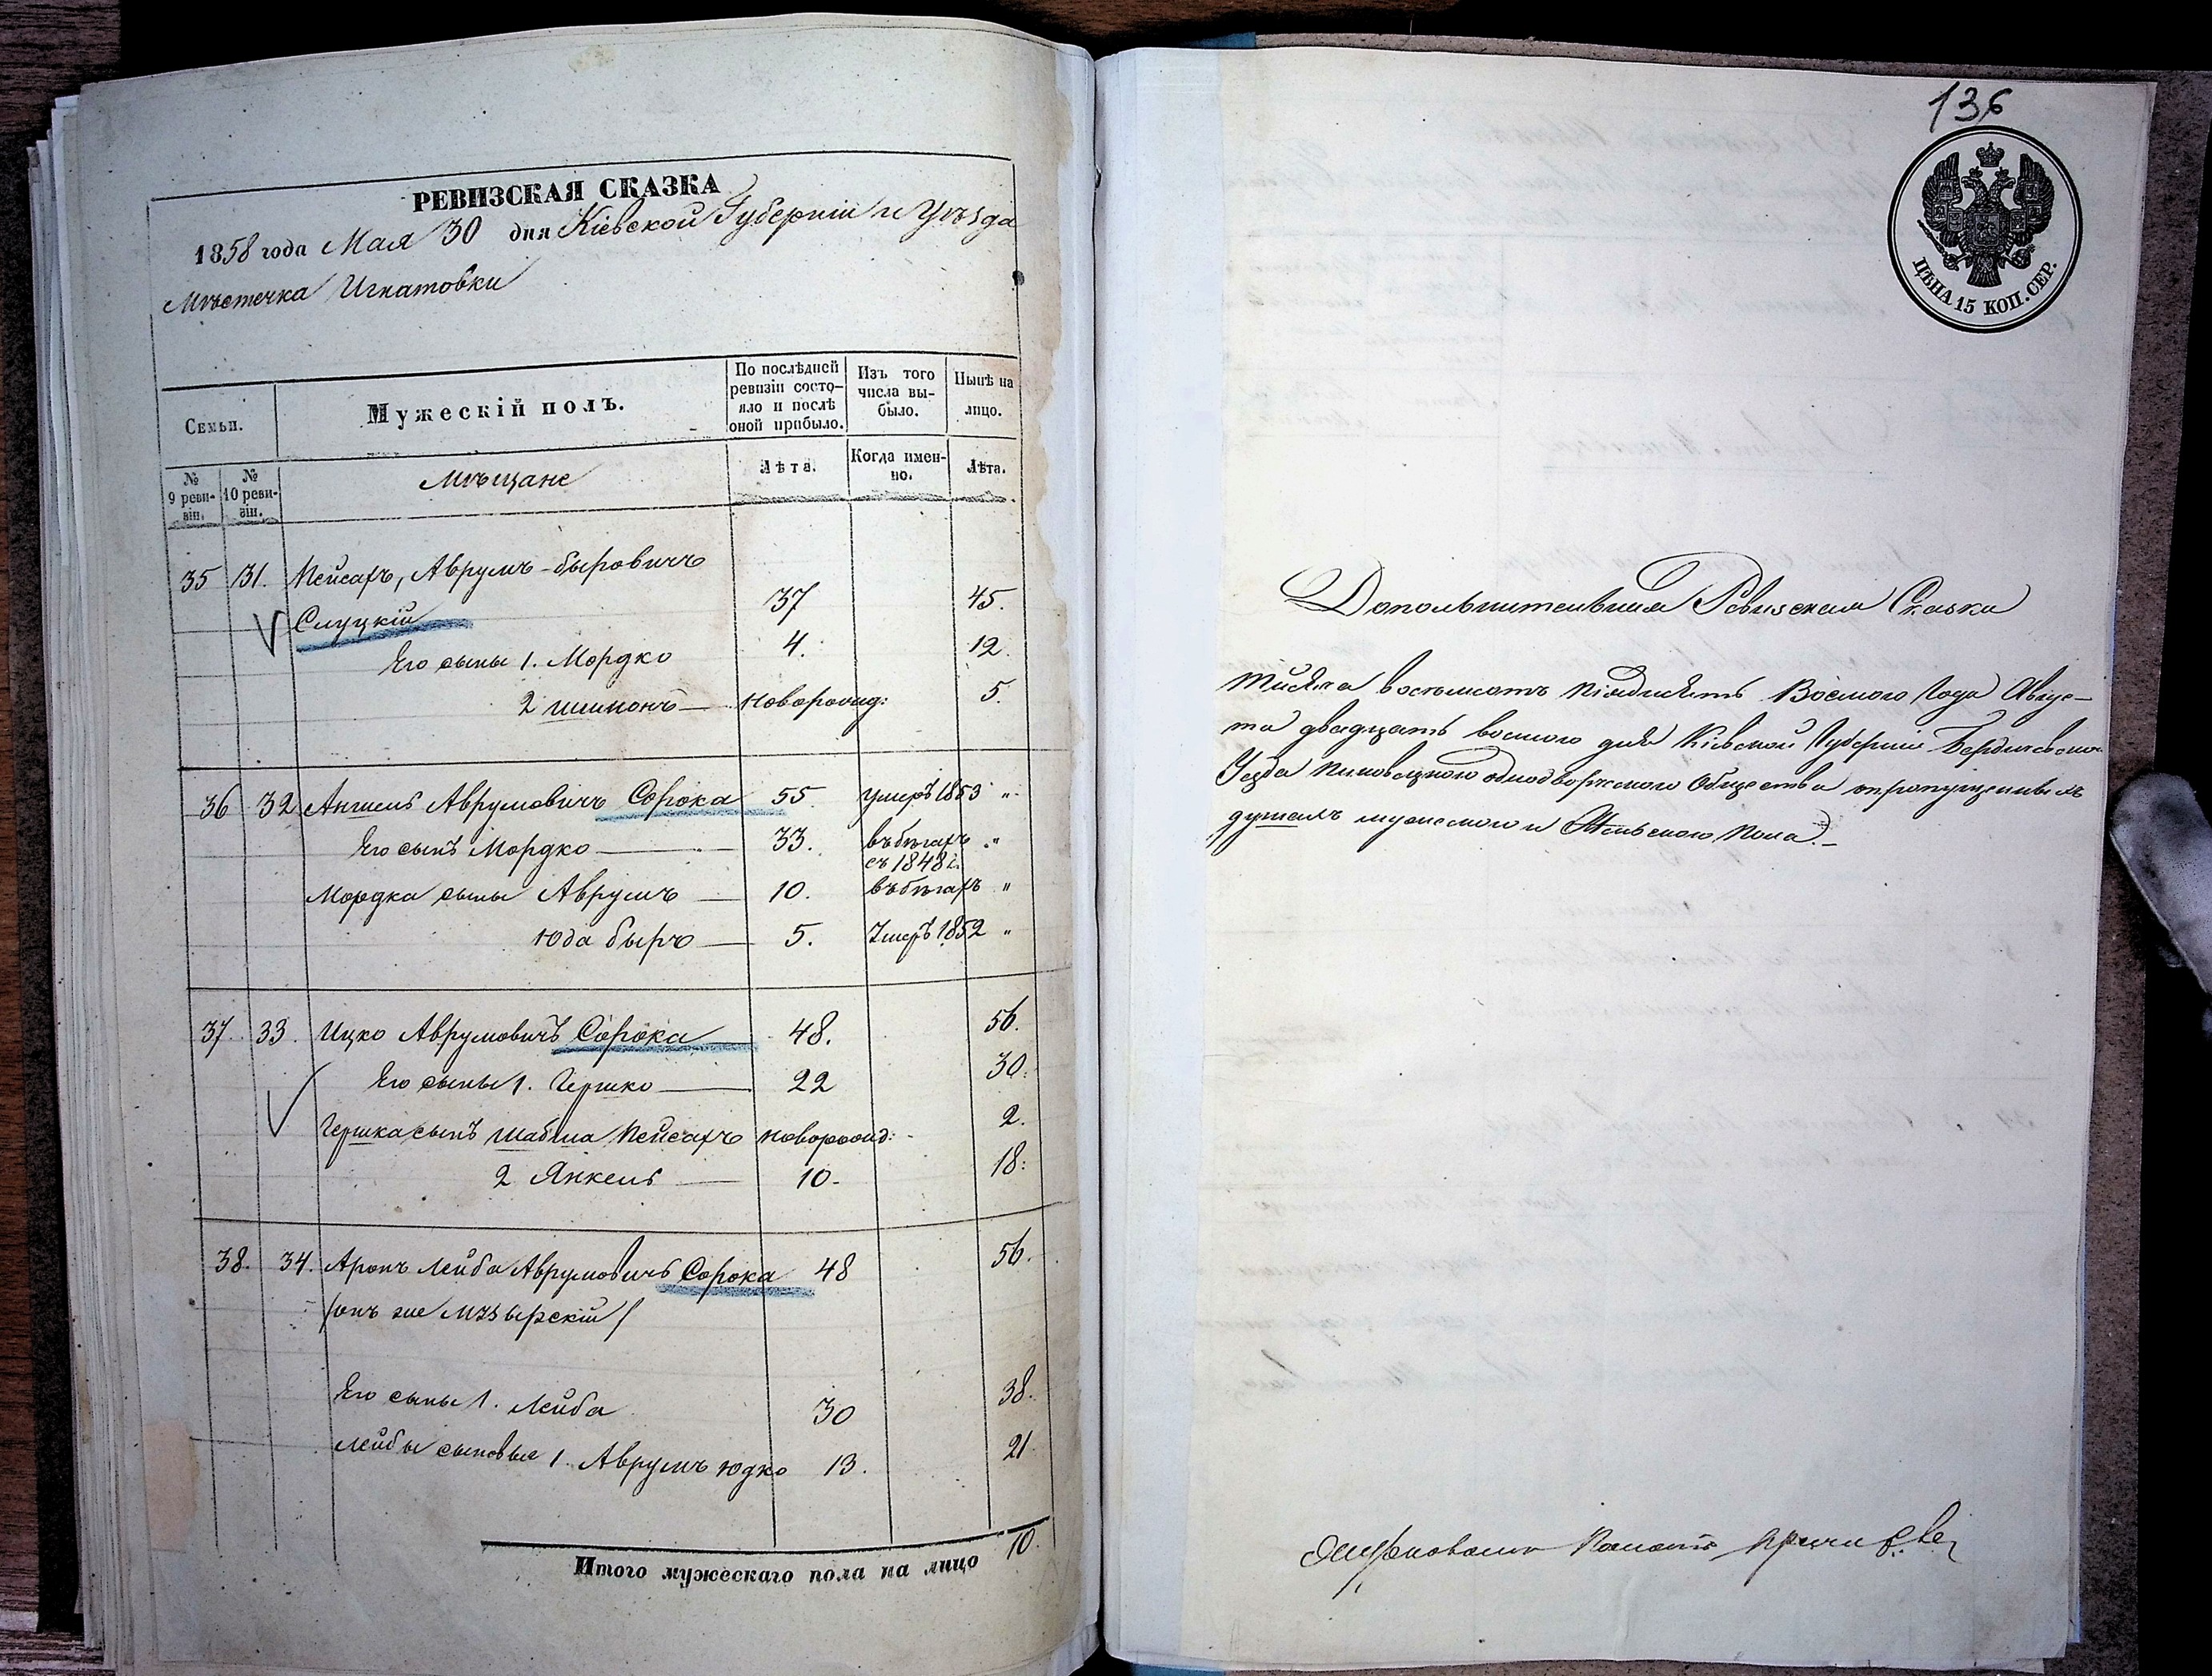 РЕВИЗСКАЯ СКАЗКА
1858 года Мая 30 дня Кіевской Губерніи и Уѣзда
Мѣстечка Игнатовки
Семьи.
Мужескій полъ.
По послѣдней ревизіи состо-яло и послѣ оной прибыло.
Изъ того числа вы-было.
Нынѣ на лицо.
№ 9 реви-зіи.
№ 10 реви-зіи.
Мѣщане
Лѣта.
Когда имен-но.
Лѣта.
35 31. Пейсахъ, Аврумъ-Быровичъ
Слуцкій 37 45.
Его сыны 1. Мордко 4. 12.
2 Шимонъ новорожд: 5.
36 32 Аншель Аврумовичъ Сорока 55 умеръ 1853 "
Его сынъ Мордко 33. въ бѣгахъ "
съ 1848 г.
Мордка сыны Аврумъ 10. въ бѣгахъ "
Юда Быръ 5. Умеръ 1852 "
37. 33. Ицко Аврумовичъ Сорока 48. 56.
Его сыны 1. Гершко 22 30.
Гершка сынъ Шабша Пейсахъ новорожд: 2.
2 Янкель 10. 18.
38. 34. Аронъ Лейба Аврумовичъ Сорока 48 56.
/онъ же Мзырскій/
Его сыны 1. Лейба 30 38.
Лейбы сыновья 1. Аврумъ Юдко 13. 21.
10.
Итого мужескаго пола на лицо
136
ЦѢНА 15 КОП. СЕР.
Дополнительная Ревизская Сказка
Тысяча восемьсотъ пятдисятъ Восмого Года Авгус-
та двадцать восмого дня Кіевской Губерніи Бердичевского
Уезда однодворческого Общества о пропущенныхъ
душахъ мужеского и Женского Пола.